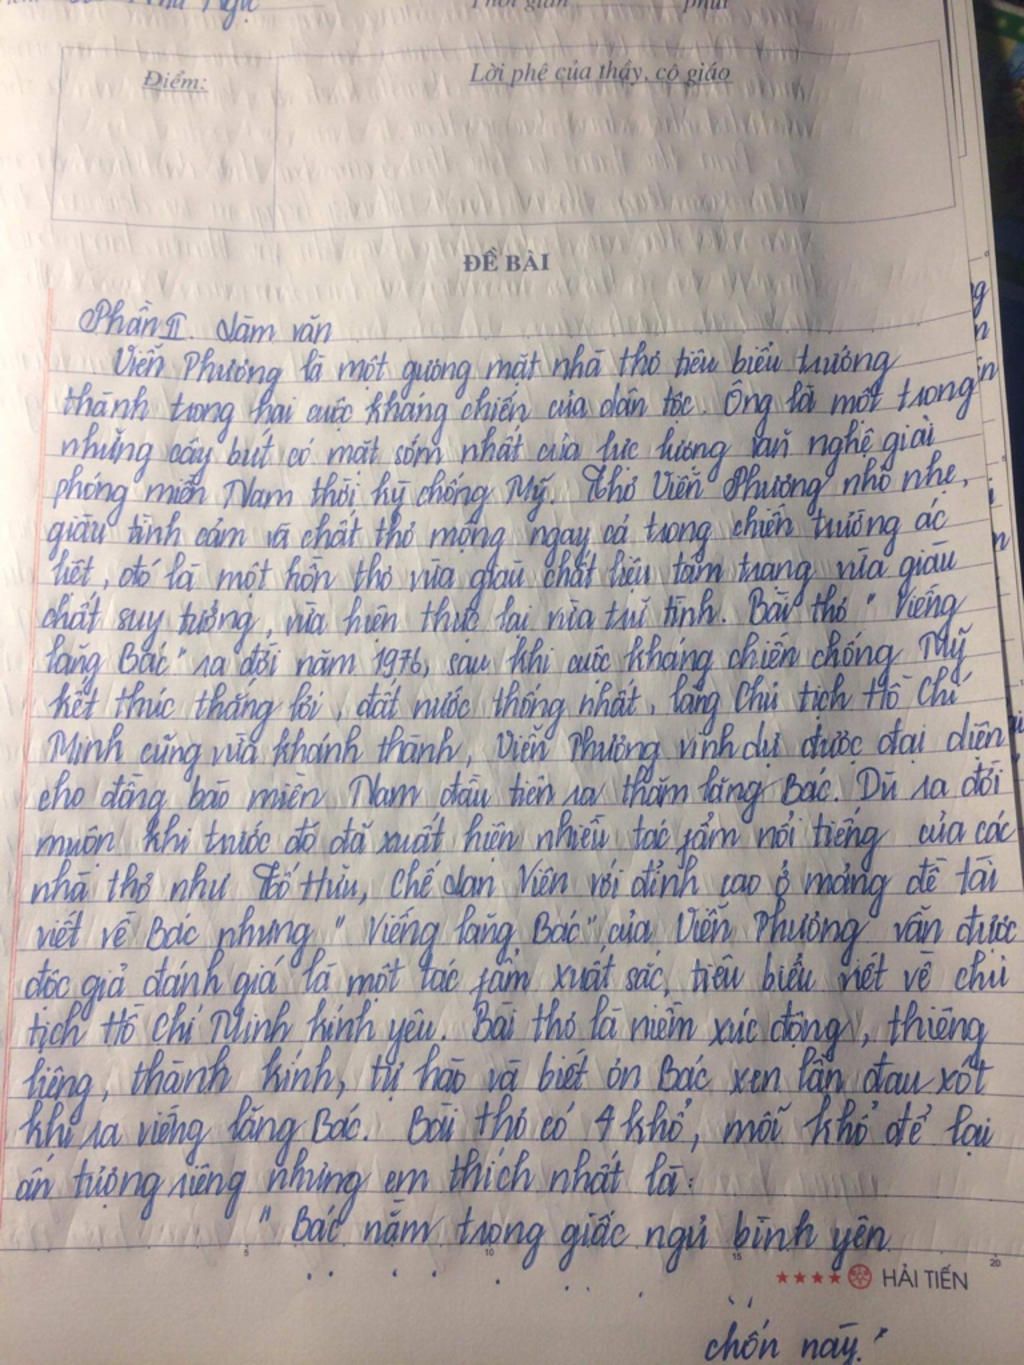 Thời gian phút
Điểm:
Lời phê của thầy, cô giáo
ĐỀ BÀI
Phần II. Làm văn
Viễn Phương là một gương mặt nhà thơ tiêu biểu trưởng
thành trong hai cuộc kháng chiến của dân tộc. Ông là một trong
những cây bút có mặt sớm nhất của lực lượng văn nghệ giải
phóng miền Nam thời kỳ chống Mỹ. Thơ Viễn Phương nhỏ nhẹ,
giàu tình cảm và chất thơ mộng ngay cả trong chiến trường ác
liệt, đó là một hồn thơ vừa giàu chất liệu tâm trạng vừa giàu
chất suy tưởng, vừa hiện thực lại vừa trữ tình. Bài thơ " Viếng
lăng Bác" ra đời năm 1976, sau khi cuộc kháng chiến chống Mỹ
kết thúc thắng lợi, đất nước thống nhất, lăng Chủ tịch Hồ Chí
Minh cũng vừa khánh thành, Viễn Phương vinh dự được đại diện
cho đồng bào miền Nam đầu tiên ra thăm lăng Bác. Dù ra đời
muộn khi trước đó đã xuất hiện nhiều tác phẩm nổi tiếng của các
nhà thơ như Tố Hữu, Chế Lan Viên với đỉnh cao ở mảng đề tài
viết về Bác nhưng " Viếng lăng Bác" của Viễn Phương vẫn được
độc giả đánh giá là một tác phẩm xuất sắc, tiêu biểu viết về chủ
tịch Hồ Chí Minh kính yêu. Bài thơ là niềm xúc động, thiêng
liêng, thành kính, tự hào và biết ơn Bác xen lẫn đau xót
khi ra viếng lăng Bác. Bài thơ có 4 khổ, mỗi khổ để lại
ấn tượng riêng nhưng em thích nhất là:
" Bác nằm trong giấc ngủ bình yên
HẢI TIẾN
chốn này."